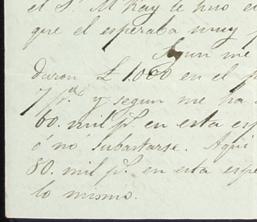 el Sr. McKay le hizo e
que el esperaba muy p
Aqui me
daron £ 1000 en el p
y segun me ha
60. mil ps. en esta esp
ó no subastarse. Aqui
80. mil ps. en esta espe
lo mismo.